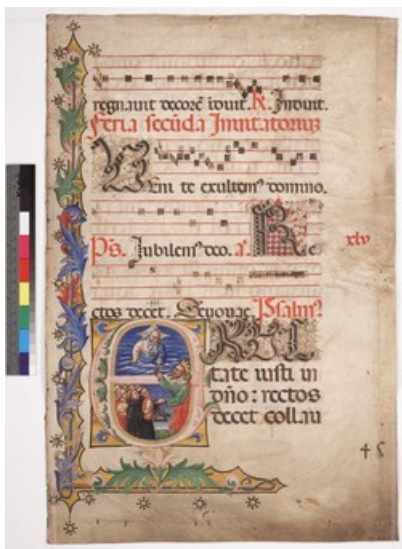 regnauit decorē iduit. R. Induit.
Feria secūda Inuitatoriuꝫ
Veni te exultemꝰ domino.
Ps. Jubilemꝰ deo. a. Re
xlv
ctos decet. Seuouae. Psalmꝰ
EXUL
tate iusti in
dño: rectos
decet collau